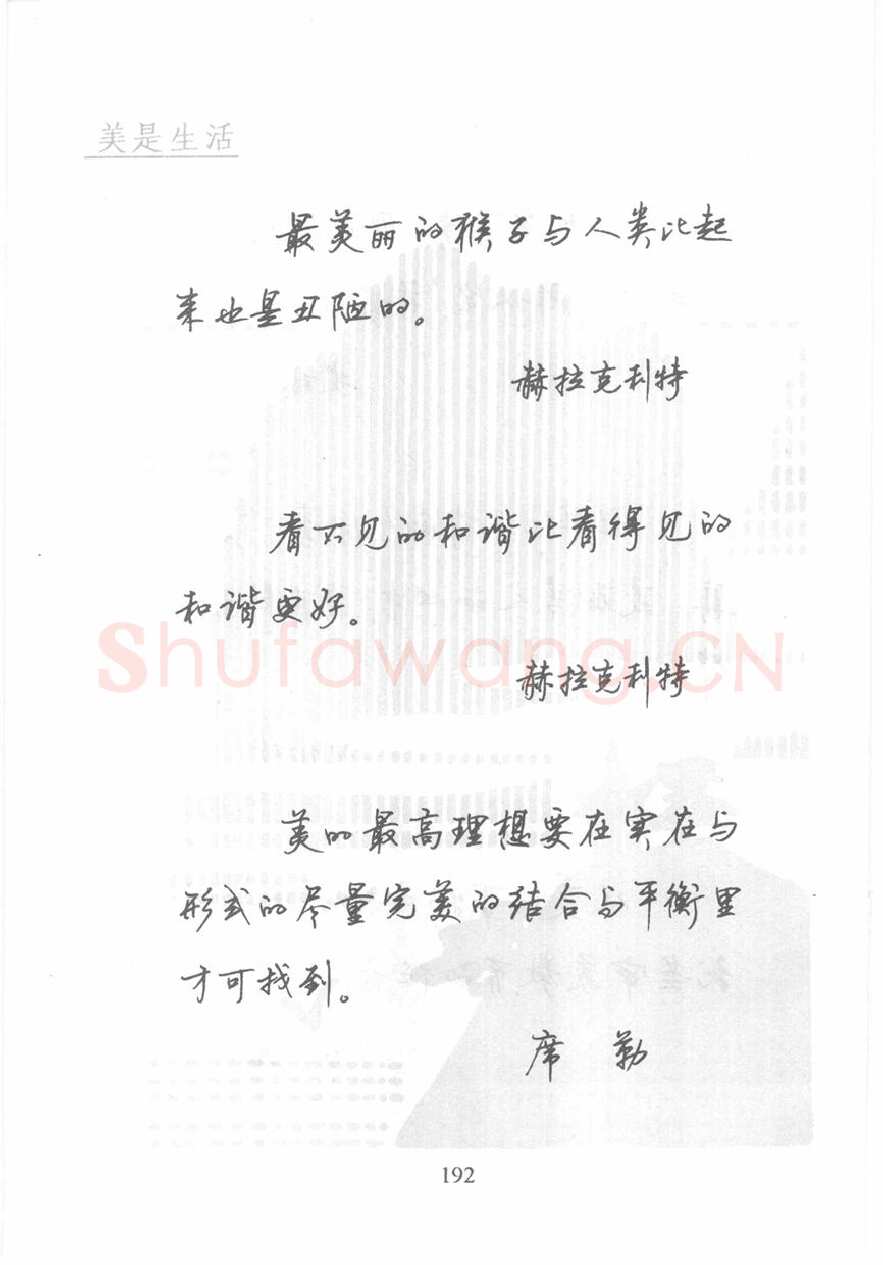 美是生活
最美丽的猴子与人类比起
来也是丑陋的。
赫拉克利特
看不见的和谐比看得见的
和谐更好。
赫拉克利特
Shufawang.CN
美的最高理想要在实在与
形式的尽量完美的结合与平衡里
才可找到。
席勒
192